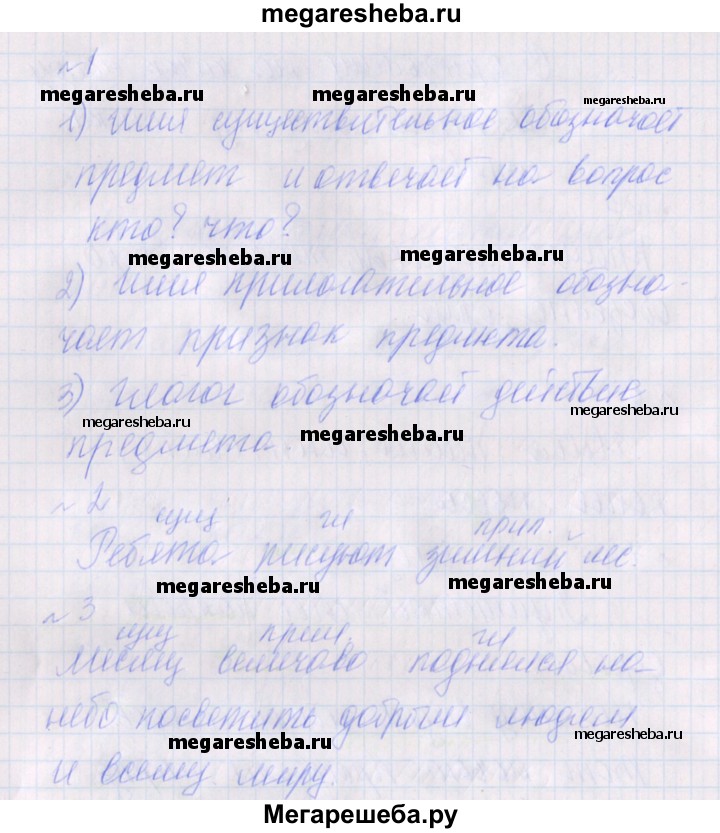 megaresheba.ru
№1
megaresheba.ru megaresheba.ru megaresheba.ru
1) Имя существительное обозначает
предмет и отвечает на вопрос
кто? что?
megaresheba.ru megaresheba.ru
2) Имя прилагательное обозна-
чает признак предмета.
3) Глагол обозначает действие
megaresheba.ru megaresheba.ru megaresheba.ru
предмета.
№2
сущ гл прил.
Ребята рисуют зимний лес.
megaresheba.ru megaresheba.ru
№3
сущ прил. гл
Месяц величаво поднялся на
небо посветить добрым людям
megaresheba.ru megaresheba.ru
и всему миру.
Мегарешеба.ру